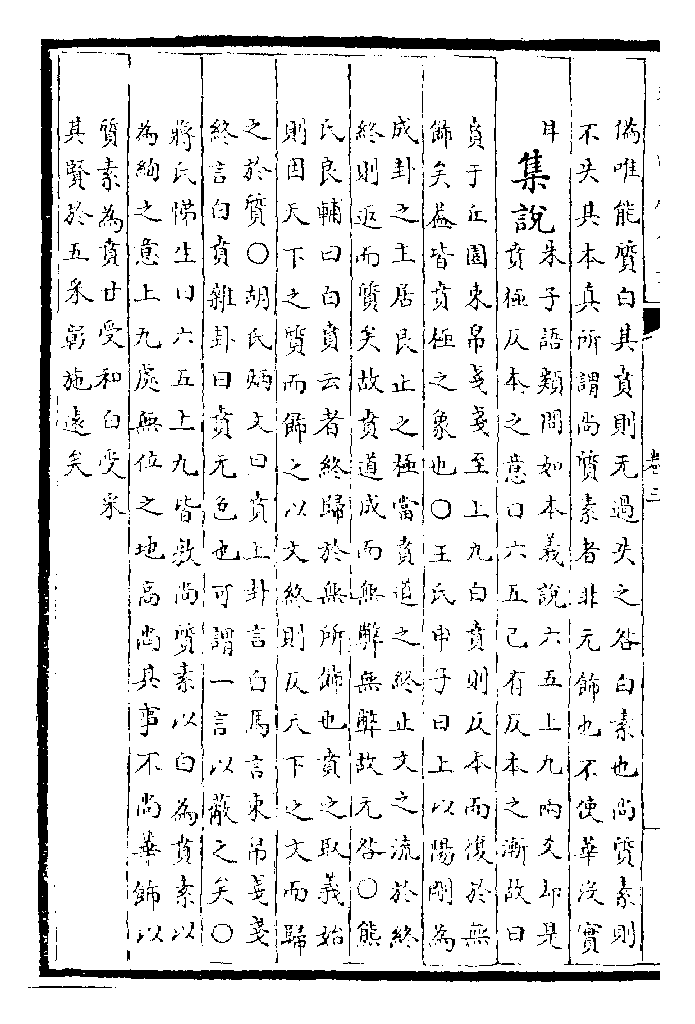 偽唯能質白其賁則无過失之咎白素也尚質素則
不失其本真所謂尚質素者非无飾也不使華沒實
耳
集說
朱子語類問如本義說六五上九兩爻却是
賁極反本之意曰六五已有反本之漸故曰
賁于丘園束帛戔戔至上九白賁則反本而復於無
飾矣蓋皆賁極之象也○王氏申子曰上以陽剛為
成卦之主居艮止之極當賁道之終止文之流於終
終則返而質矣故賁道成而無弊無弊故无咎○熊
氏良輔曰白賁云者終歸於無所飾也賁之取義始
則因天下之質而飾之以文終則反天下之文而歸
之於質○胡氏炳文曰賁上卦言白馬言束帛戔戔
終言白賁雜卦曰賁无色也可謂一言以蔽之矣○
蔣氏悌生曰六五上九皆敦尚質素以白為賁素以
為絢之意上九處無位之地高尚其事不尚華飾以
質素為賁甘受和白受采
其賢於五采彰施遠矣
卷三